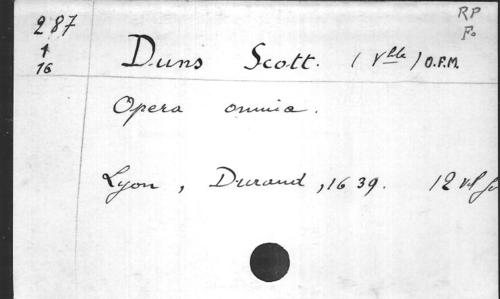 287
↑
16
RP
Fo
Duns Scott. (Vble) O.F.M.
Opera omnia.
Lyon, Durand, 1639. 12 vol fo